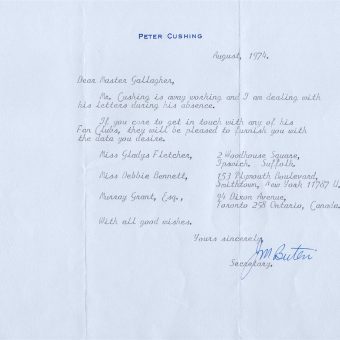 PETER CUSHING
August, 1974.
Dear Master Gallagher,
Mr. Cushing is away working and I am dealing with
his letters during his absence.
If you care to get in touch with any of his
Fan Clubs, they will be pleased to furnish you with
the data you desire.
Miss Gladys Fletcher, 2 Woodhouse Square,
Ipswich. Suffolk
Miss Debbie Bennett, 153 Plymouth Boulevard,
Smithtown, New York 11787 U.
Murray Grant, Esq., 94 Dixon Avenue,
Toronto 258 Ontario, Canada.
With all good wishes.
Yours sincerely,
Secretary.